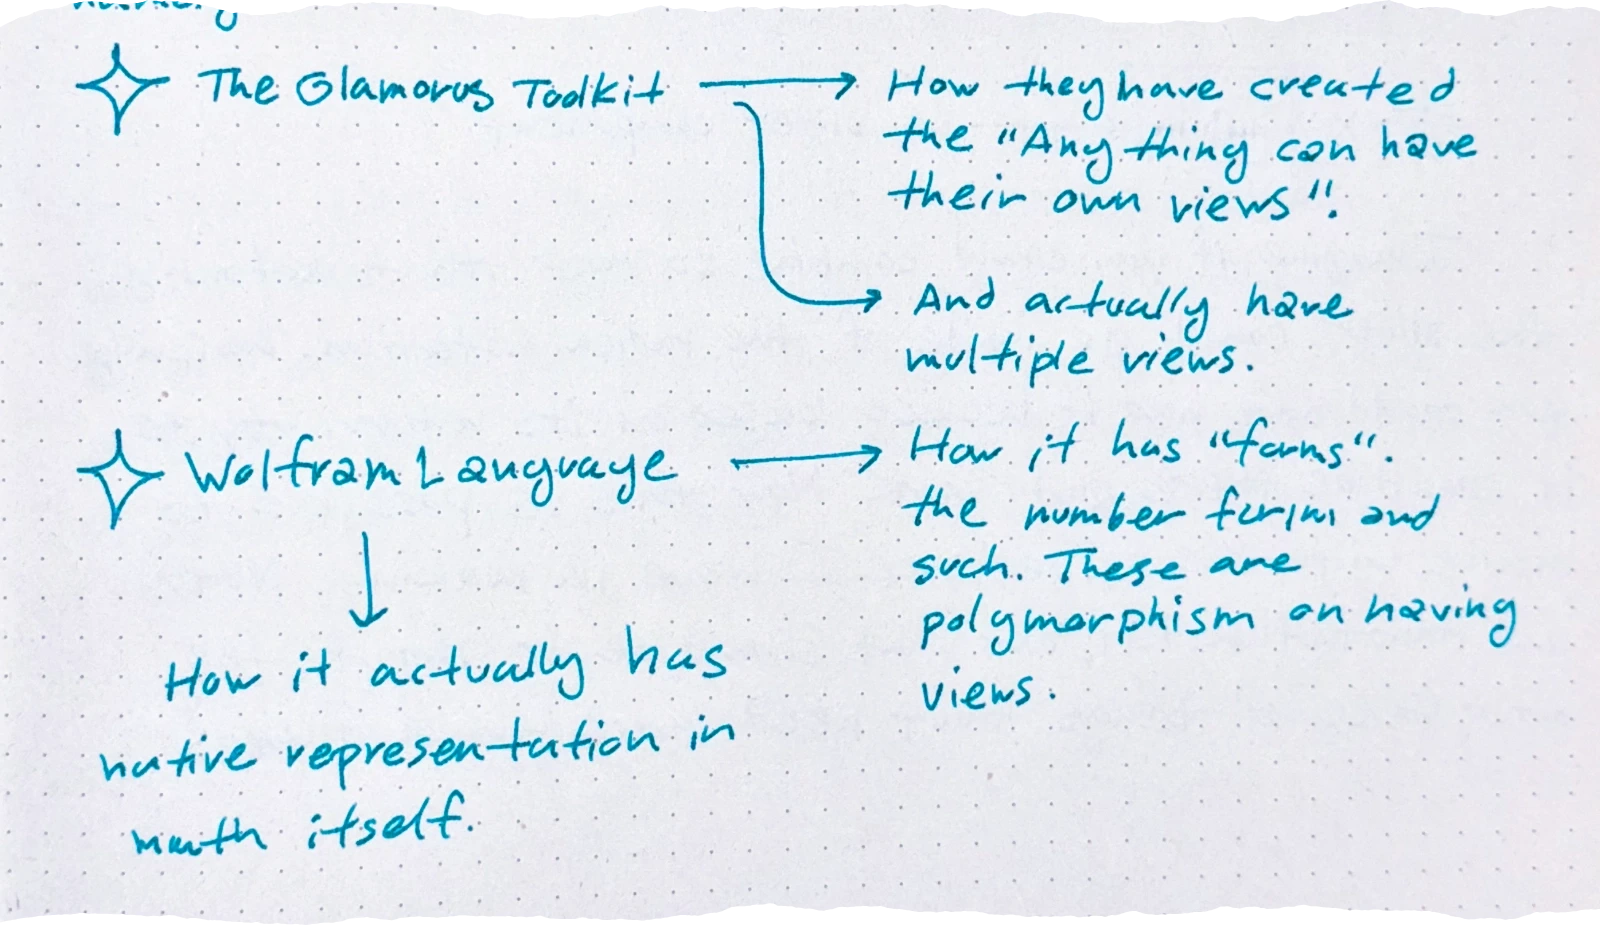 The Glamorus Toolkit
How they have created
the "Anything can have
their own views".
And actually have
multiple views.
Wolfram Language
How it has "forms".
the number form and
such. These are
polymorphism on having
views.
How it actually has
native representation in
math itself.